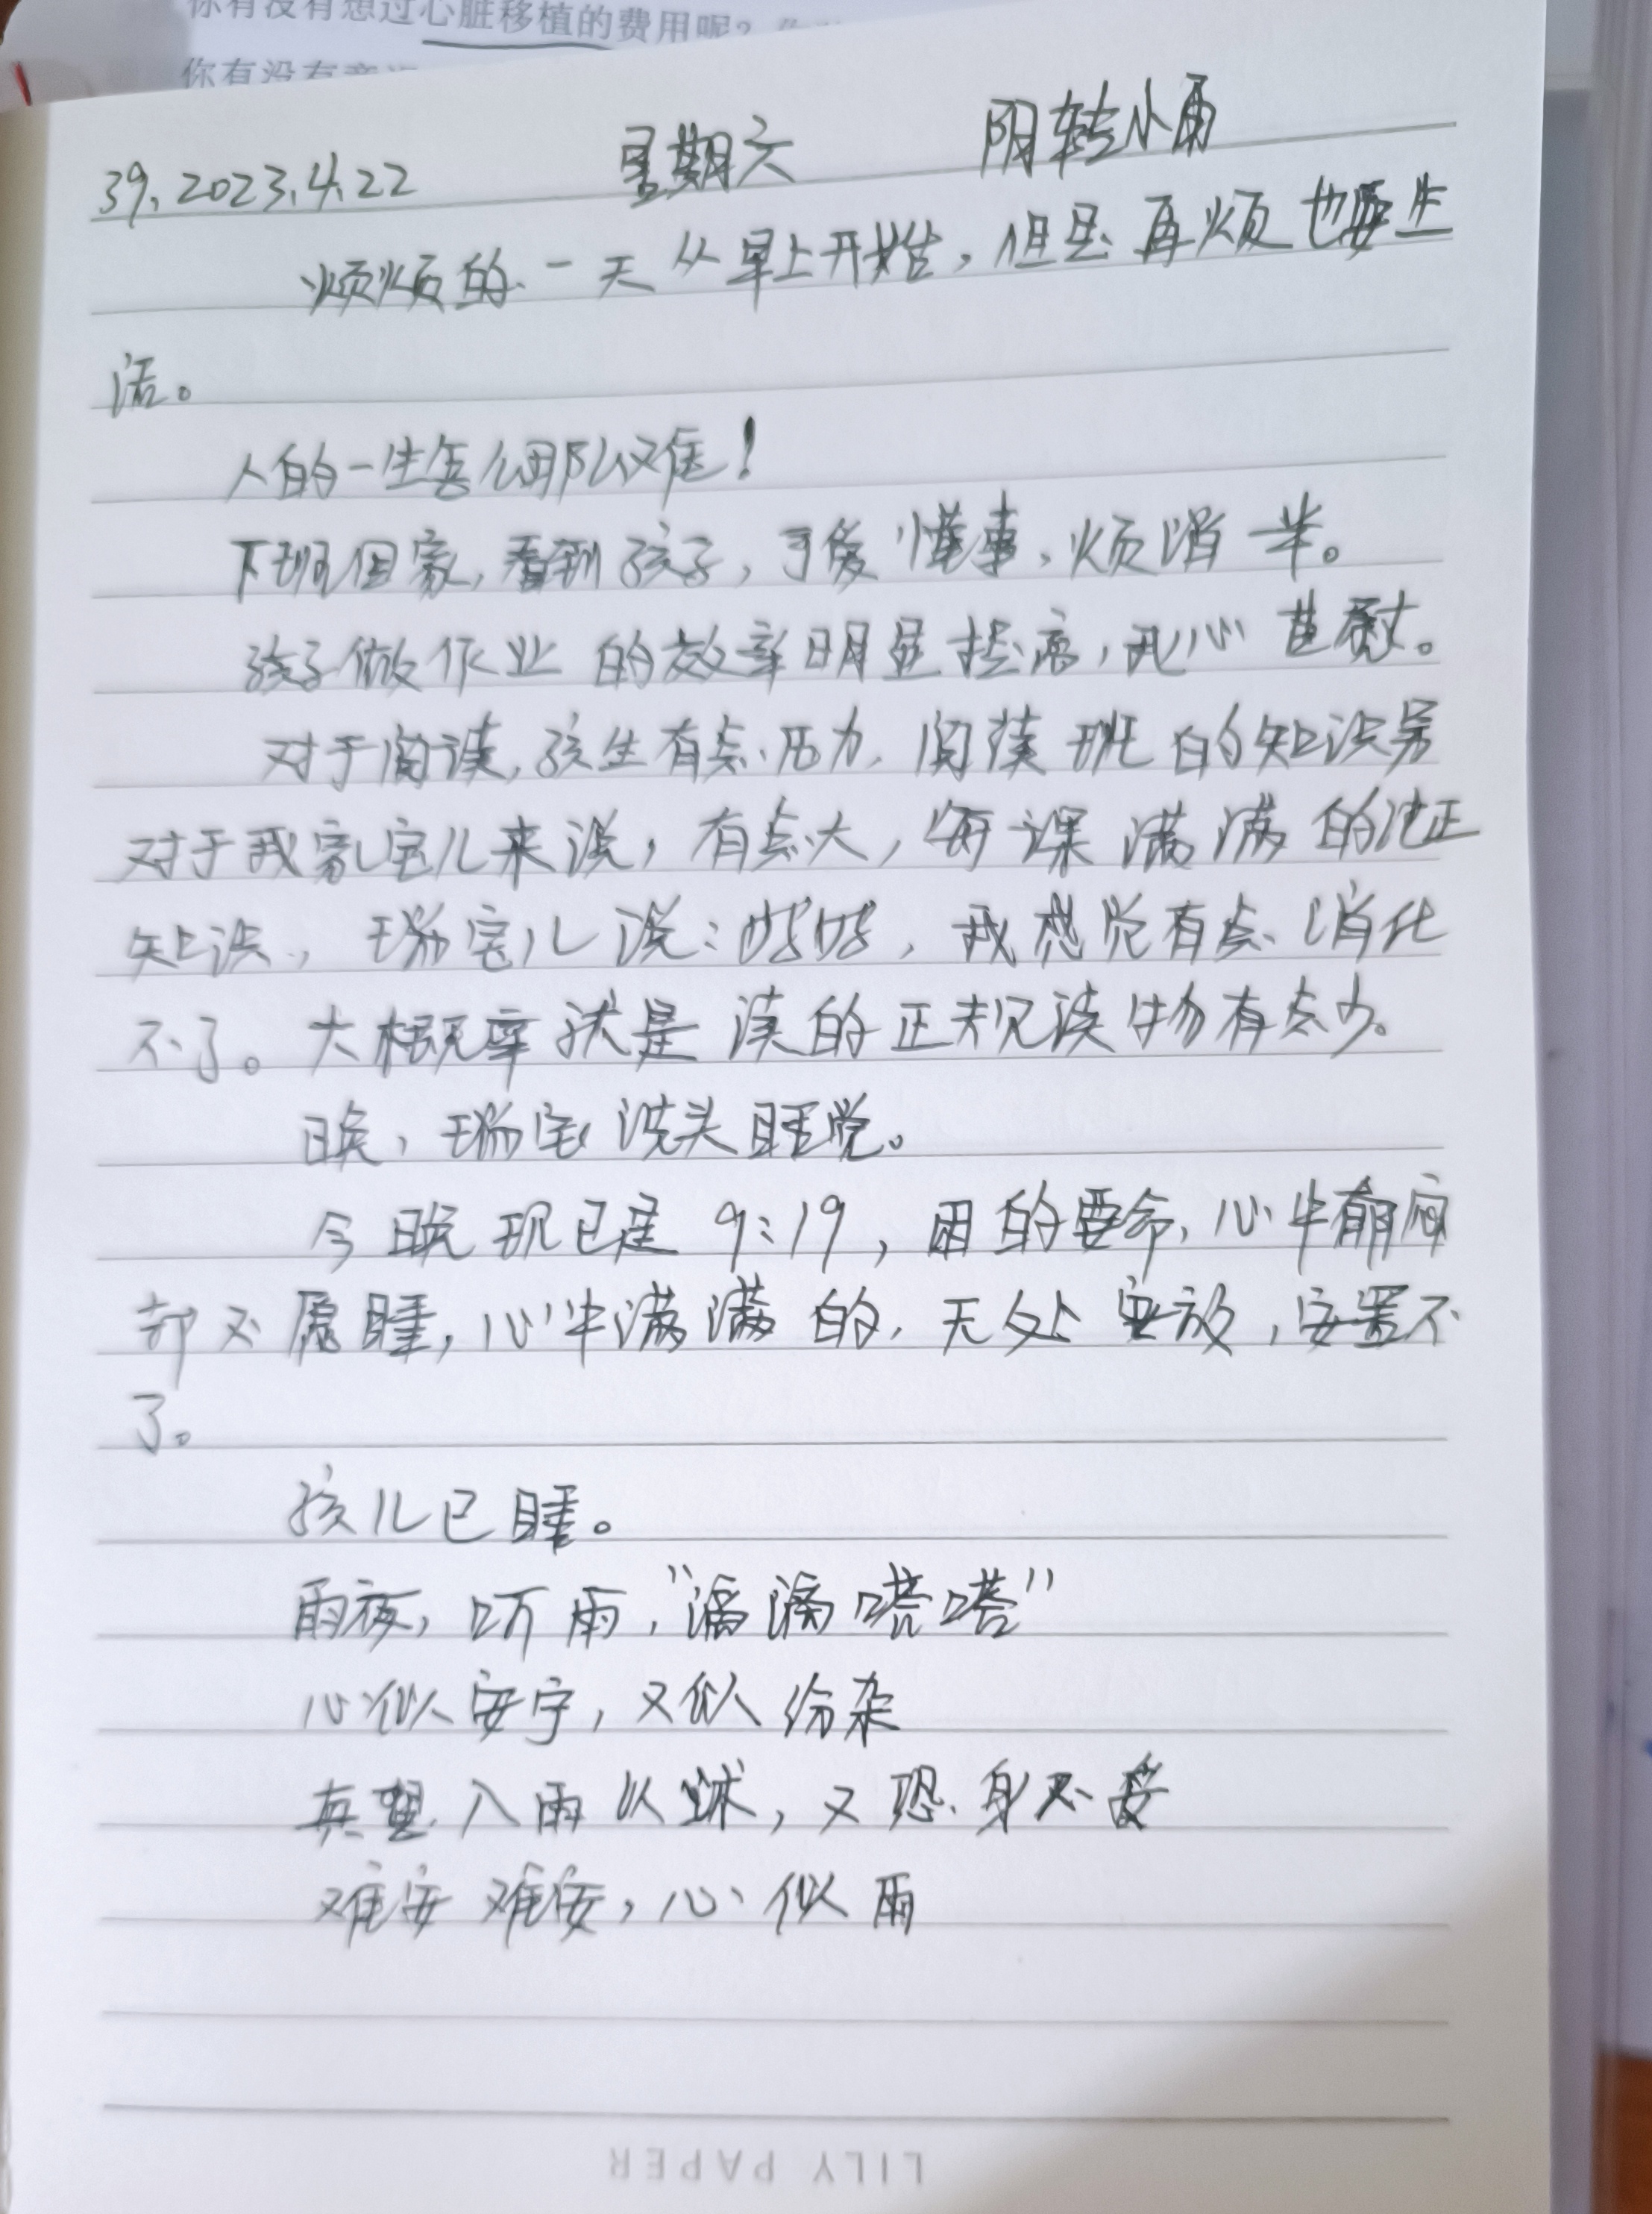 你有没有想过心脏移植的费用呢?
你有没有
39、2023.4.22 星期六 阴转小雨
烦烦的一天从早上开始，但是再烦也要生
活。
人的一生怎么那么难！
下班回家，看到孩子，可爱懂事，烦消一半。
孩子做作业的效率明显提高，我心甚慰。
对于阅读，孩生有点压力，阅读班的知识另
对于我家宝儿来说，有点大，每课满满的纯正
知识，瑞宝儿说：妈妈，我感觉有点消化
不了。大概率就是读的正规读物有点少。
晚，瑞宝洗头睡觉。
今晚现已是9:19，困的要命，心中
却不愿睡，心中满满的，无处安放，安置不
了。
孩儿已睡。
雨夜，听雨，“滴滴嗒嗒”
心似安宁，又似纷杂
真想入雨以球，又恐身不妥
难安难安，心似雨
LILY PAPER